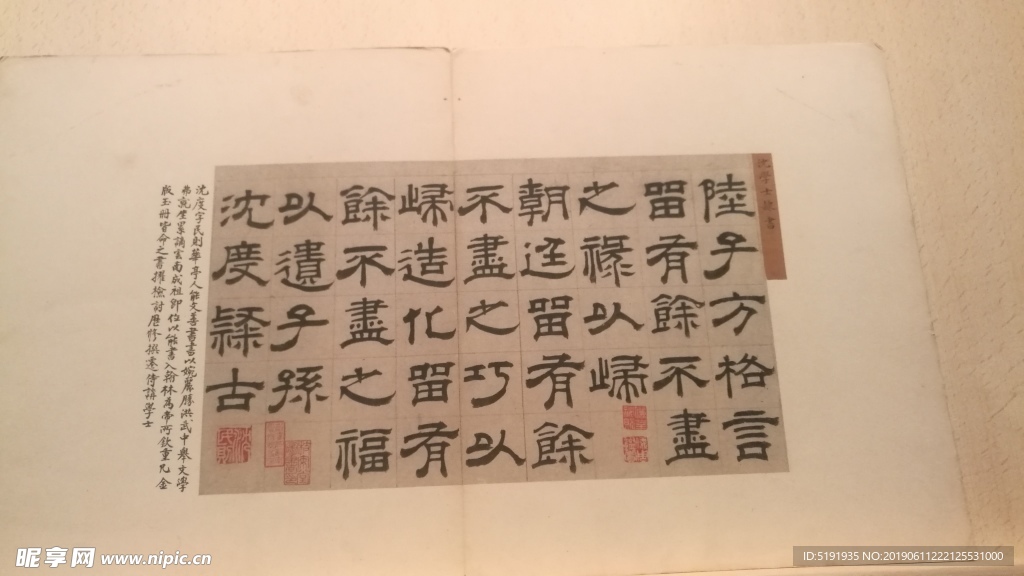 沈學士隸書
陸子方格言
畱有餘不盡
之祿以歸
朝廷畱有餘
不盡之巧以
歸造化畱有
餘不盡之福
以遺子孫
沈度隸古
沈度字民則華亭人能文善書書以婉麗勝洪武中舉文學
弗就坐累謫雲南成祖即位以能書入翰林為帝所欽重凡金
版玉冊皆命之書擢檢討歷修撰遷侍講學士
昵享网 www.nipic.cn
ID:5191935 NO:20190611222125531000